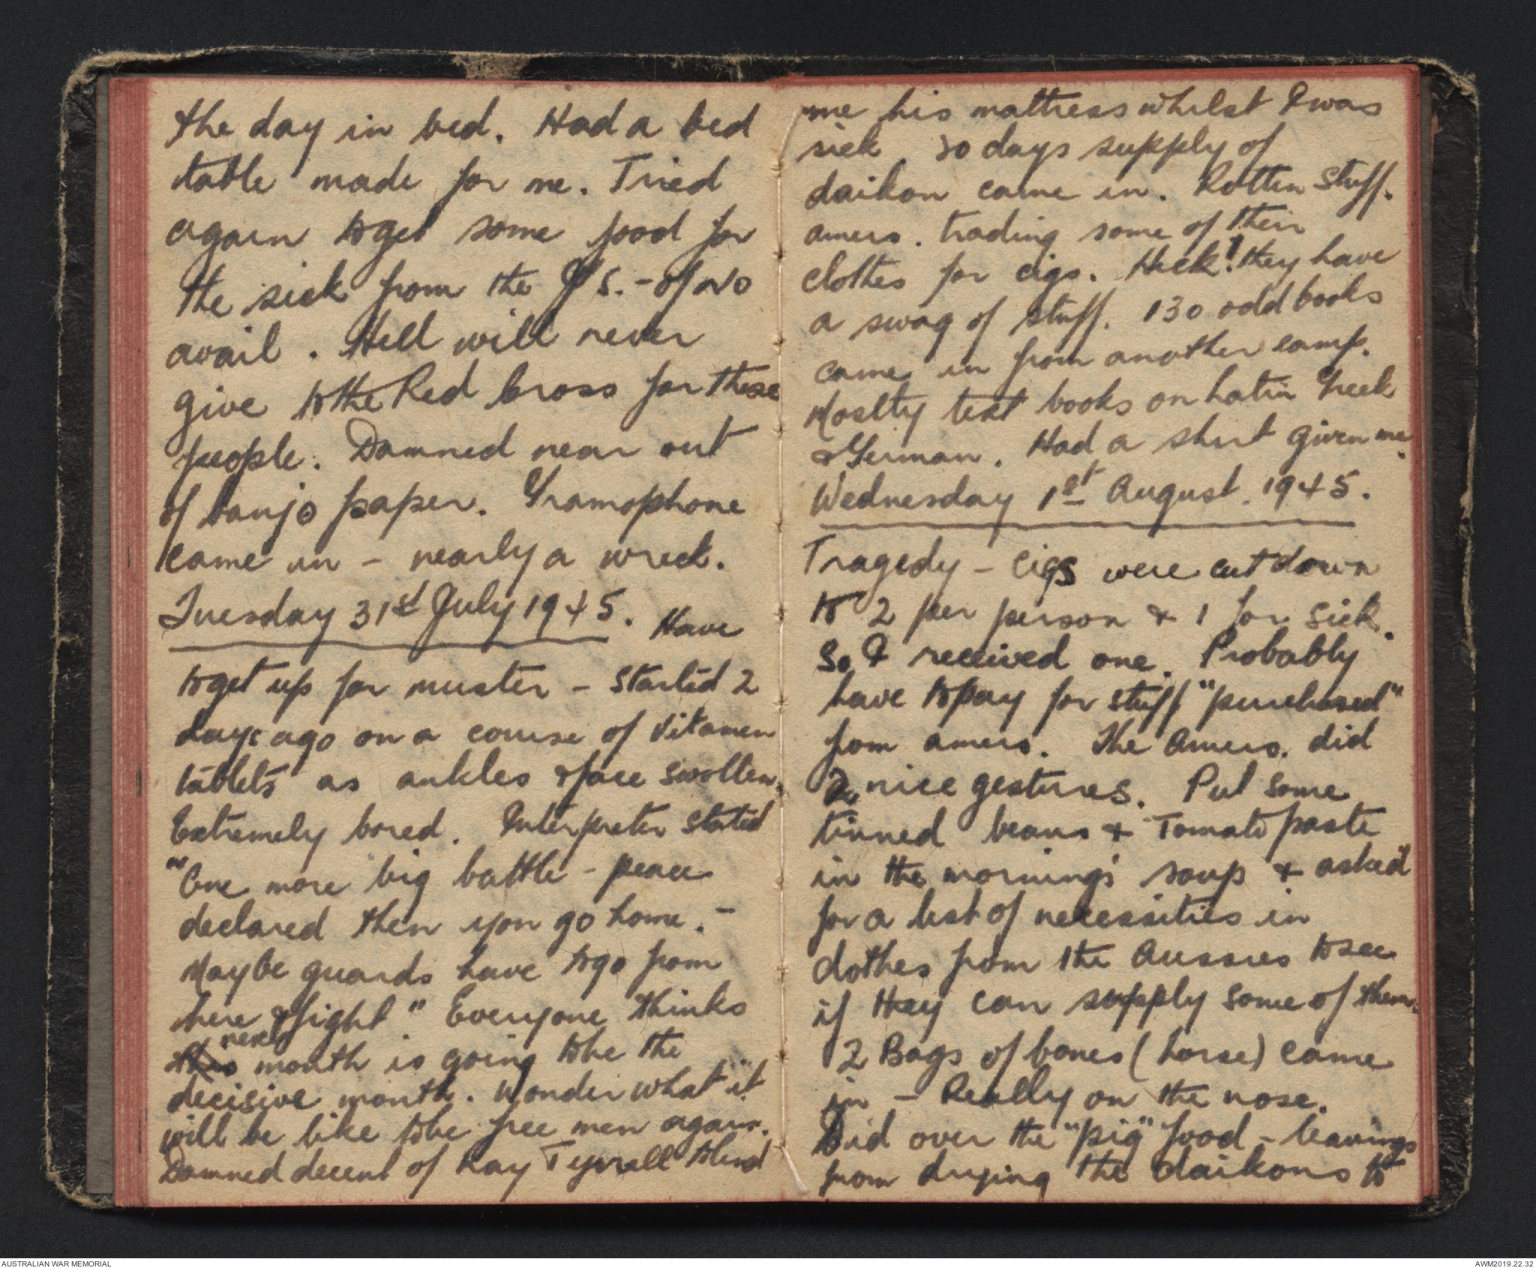 the day in bed. Had a bed
table made for me. Tried
again to get some food for
the sick from the J's. - of no
avail. Hell will never
give to the Red Cross for these
people. Damned near out
of banjo paper. Gramophone
came in - nearly a wreck.
Tuesday 31st July 1945. Have
to get up for muster - started 2
days ago on a course of vitamen
tablets as ankles & face swollten.
Extremely bored. Interpreter stated
"One more big battle - peace
declared then you go home. -
Maybe guards have to go from
here & fight." Everyone thinks
next
this month is going to be the
decisive month. Wonder what it
will be like to be free men again.
Damned decent of Ray Tyrrell to lend
me his mattress whilst I was
sick 20 days supply of
daikon came in. Rotten stuff.
amers. trading some of their
clothes for cigs. Heck! they have
a swag of stuff. 130 odd books
came in from another camp.
Moslty text books on Latin Greek
& German. Had a shirt given me.
Wednesday 1st August. 1945.
Tragedy - cigs were cut down
to 2 per person & 1 for sick.
So I received one. Probably
have to pay for stuff "purchased"
from amers. The Amers. did
2 nice gestures. Put some
tinned beans + Tomato paste
in the morning's soup + asked
for a list of necessities in
clothes from the Aussies to see
if they can supply some of them.
2 Bags of bones (horse) came
in - Really on the nose.
Did over the "pig" food - leavings
from drying the daikons to
AUSTRALIAN WAR MEMORIAL
AWM2019.22.32